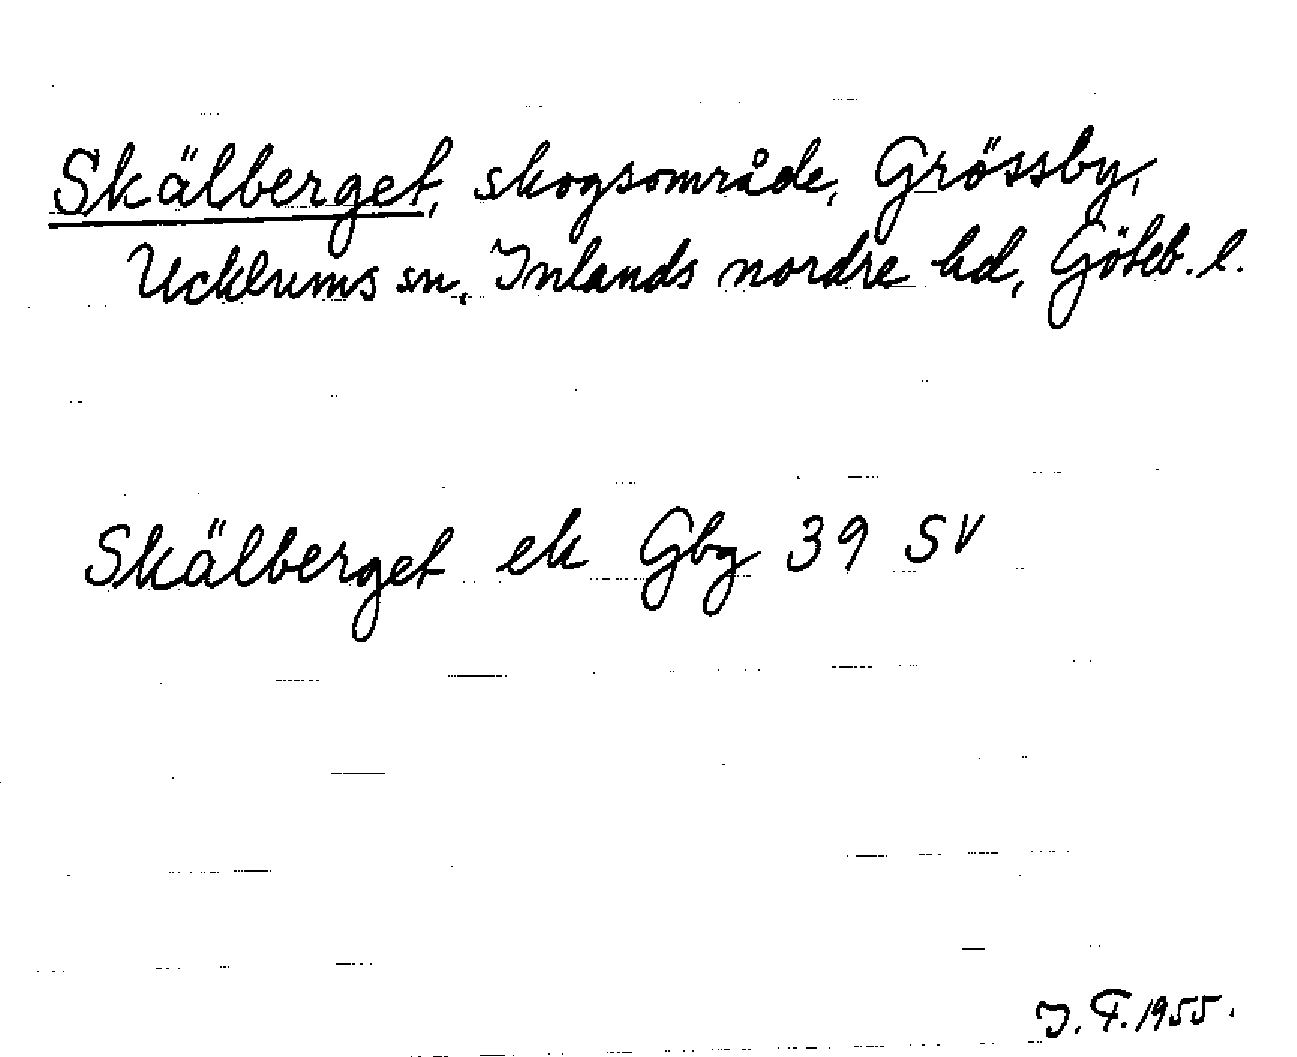 Skälberget, skogsområde, Grössby,
Ucklums sn, Inlands nordre hd, Göteb. l.
Skälberget ek Gbg 39 SV
I. F. 1955.